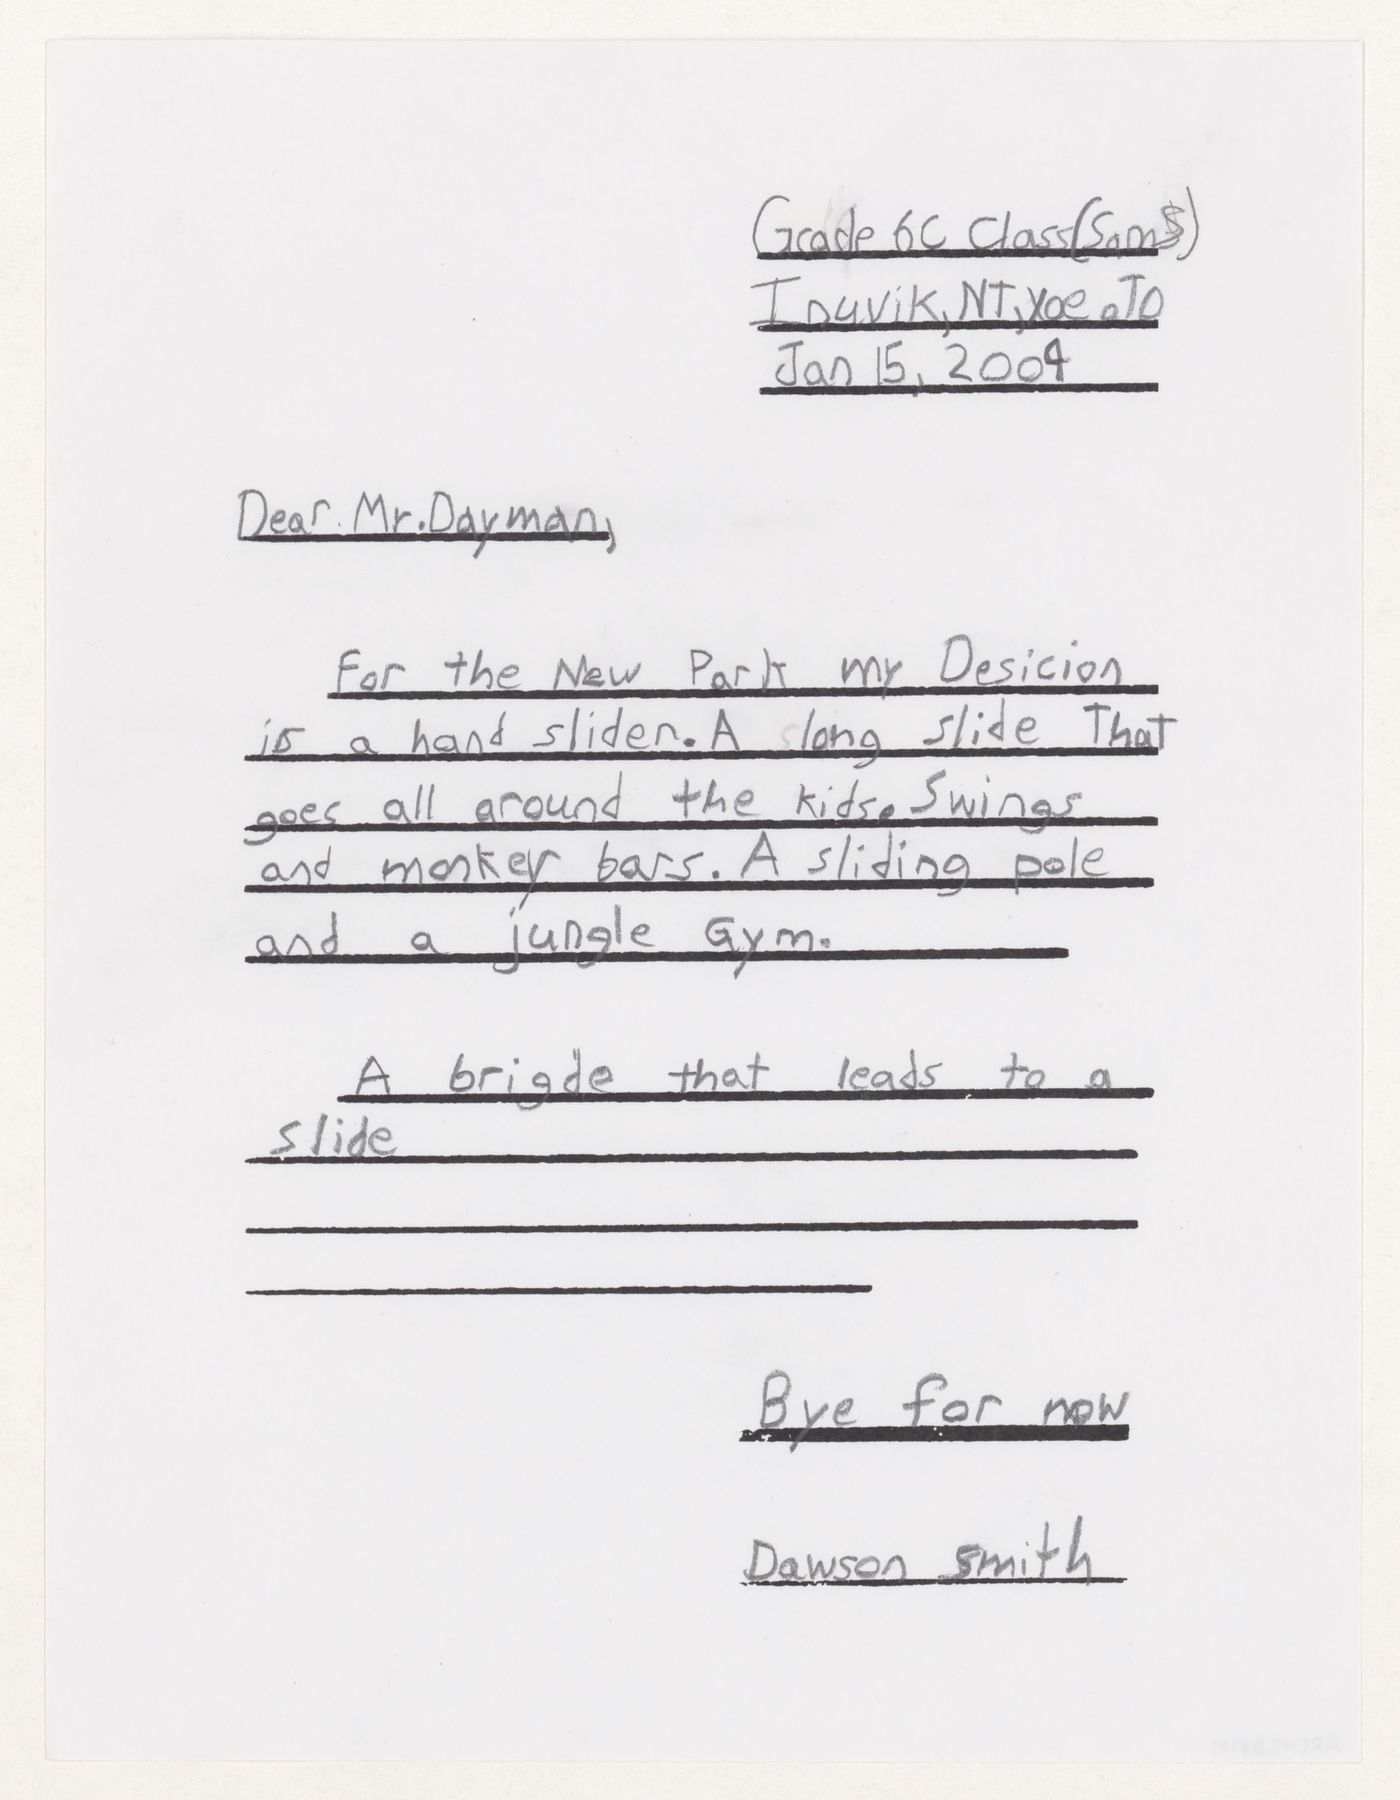 Grade 6C Class(SamS)
Inuvik, NT, Xoe.TO
Jan 15, 2004
Dear. Mr.Dayman,
For the New Park my Desicion
is a hand slider. A long slide That
goes all around the kids. Swings
and monkey bars. A sliding pole
and a jungle Gym.
A brigde that leads to a
slide
Bye for now
Dawson smith